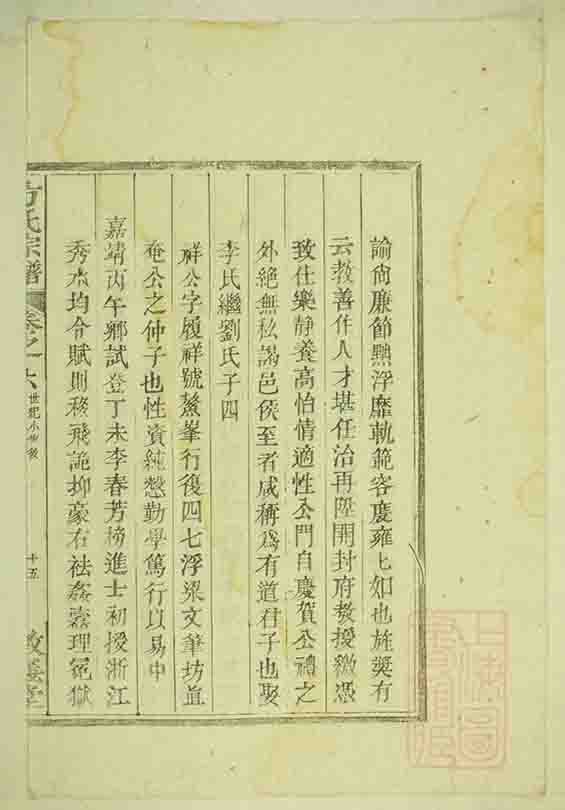 諭尚廉節黜浮靡軌範容度雍匕如也旌奬有
云教善作人才堪任治再陞開封府教授繳憑
致仕樂靜養高怡情適性公門自慶賀公禮之
外絶無私謁邑侯至者咸稱爲有道君子也娶
李氏繼劉氏子四
祥公字履祥號鰲峯行復四七浮梁文筆坊直
菴公之仲子也性資純慤勤學篤行以易中
嘉靖丙午鄉試登丁未李春芳榜進士初授浙江
秀水均令賦則稜飛詭抑豪右祛姦蠧理冤獄
方氏宗譜
卷之六
世紀小宗後
十五
敦義堂
上海圖
書館